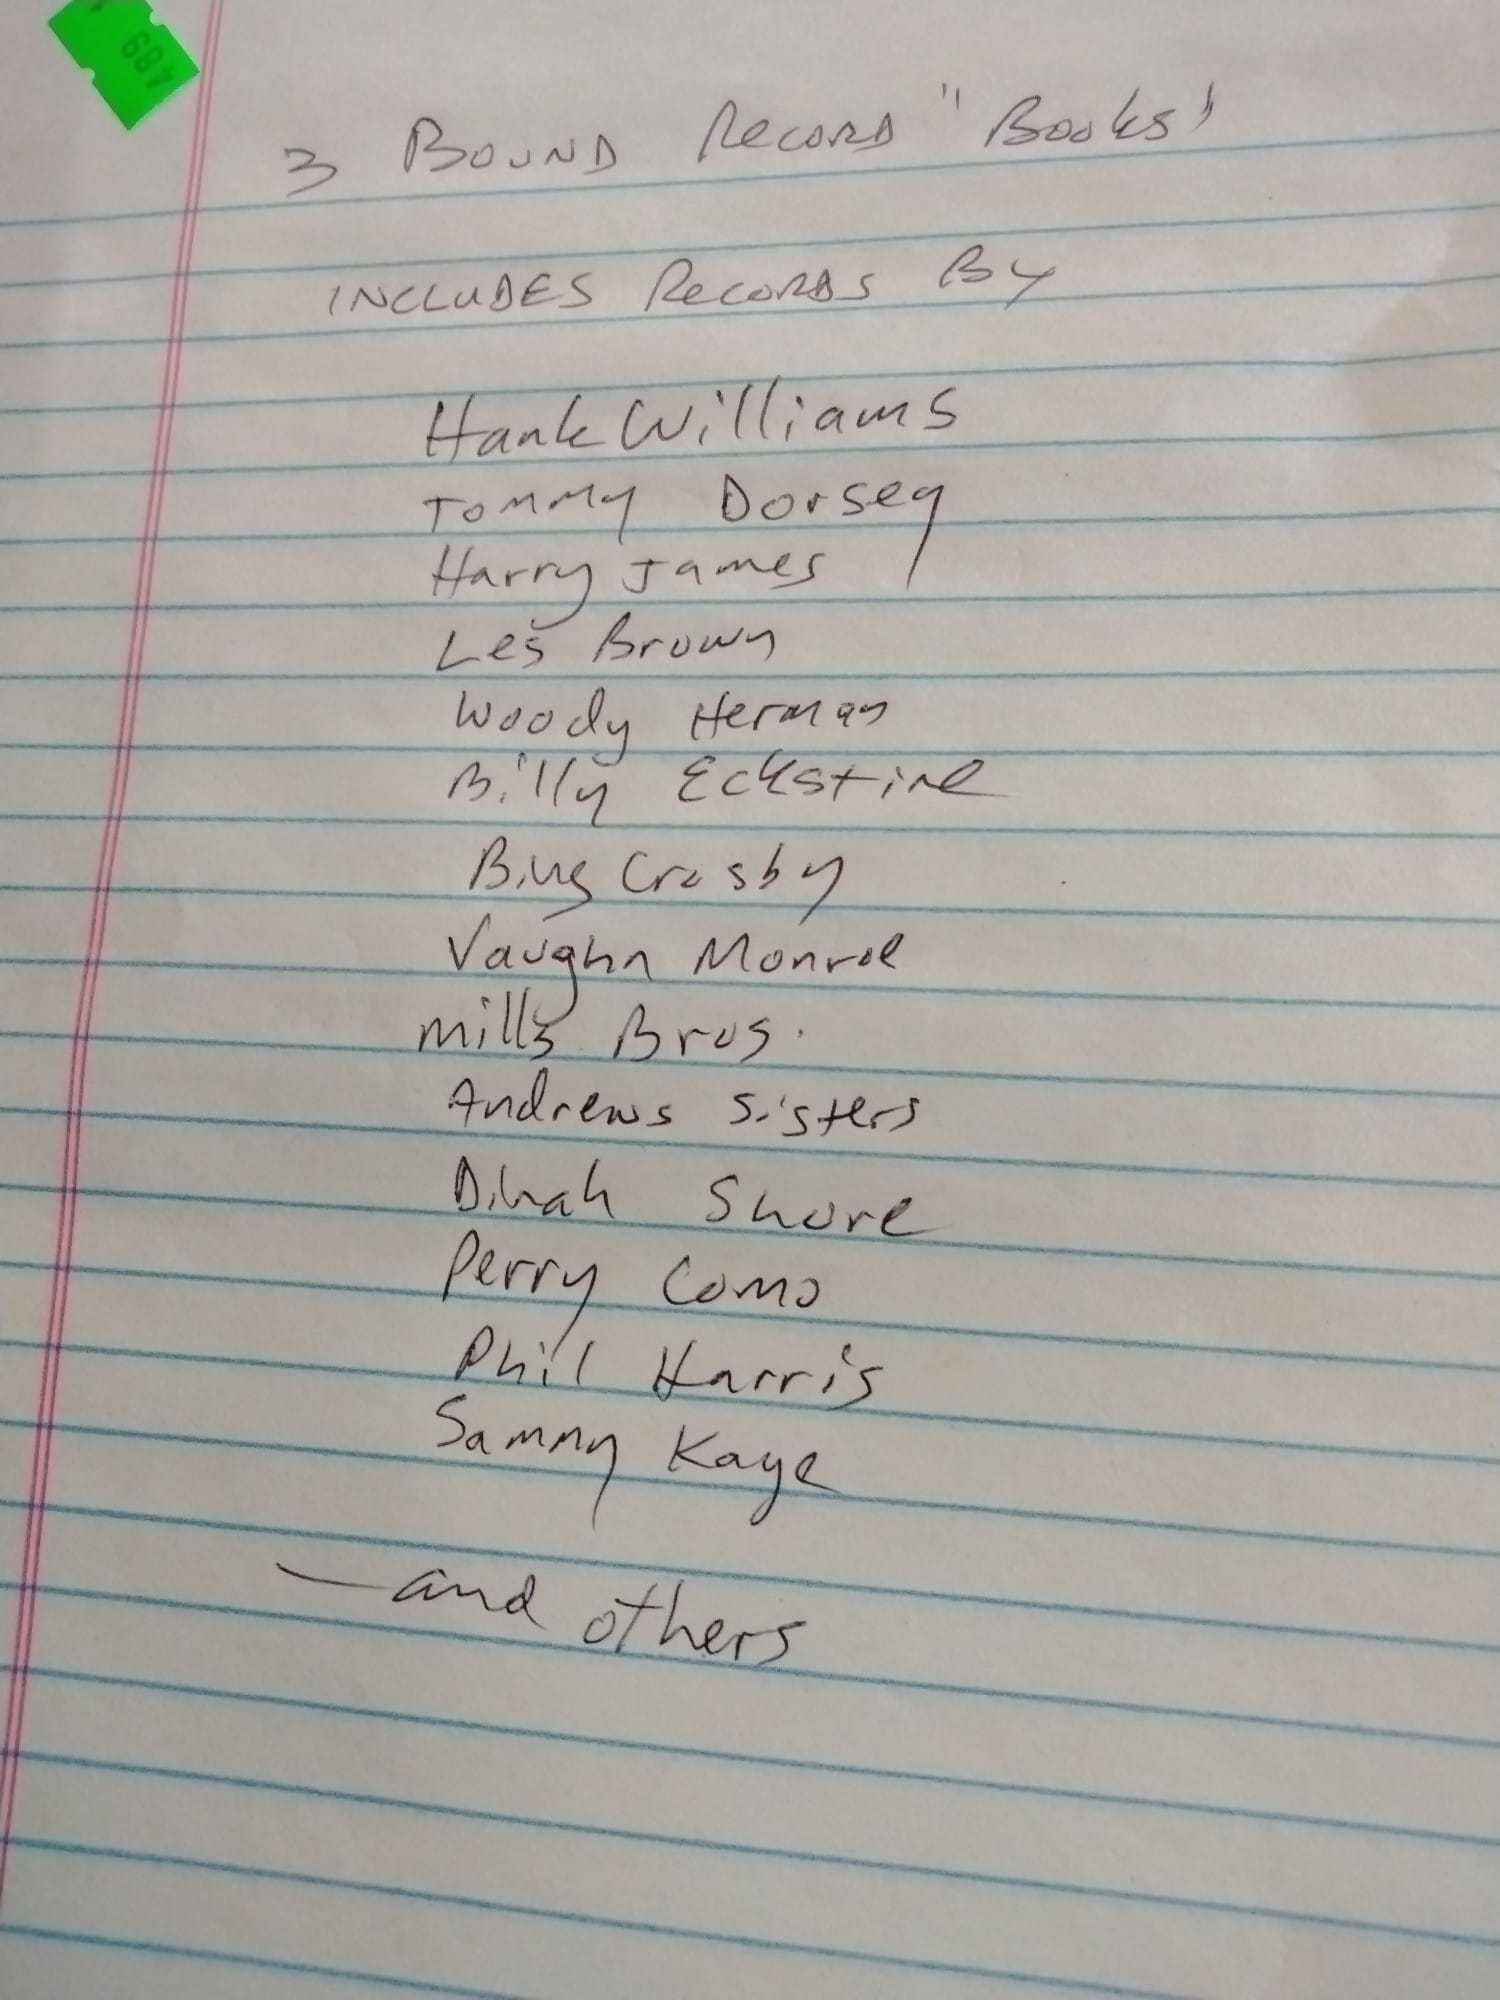 489
3 BOUND RECORD "BOOKS"
INCLUDES RECORDS BY
Hank Williams
Tommy Dorsey
Harry James
Les Brown
Woody Herman
Billy Eckstine
Bing Crosby
Vaughn Monroe
Mills Bros.
Andrews Sisters
Dinah Shore
Perry Como
Phil Harris
Sammy Kaye
—and others